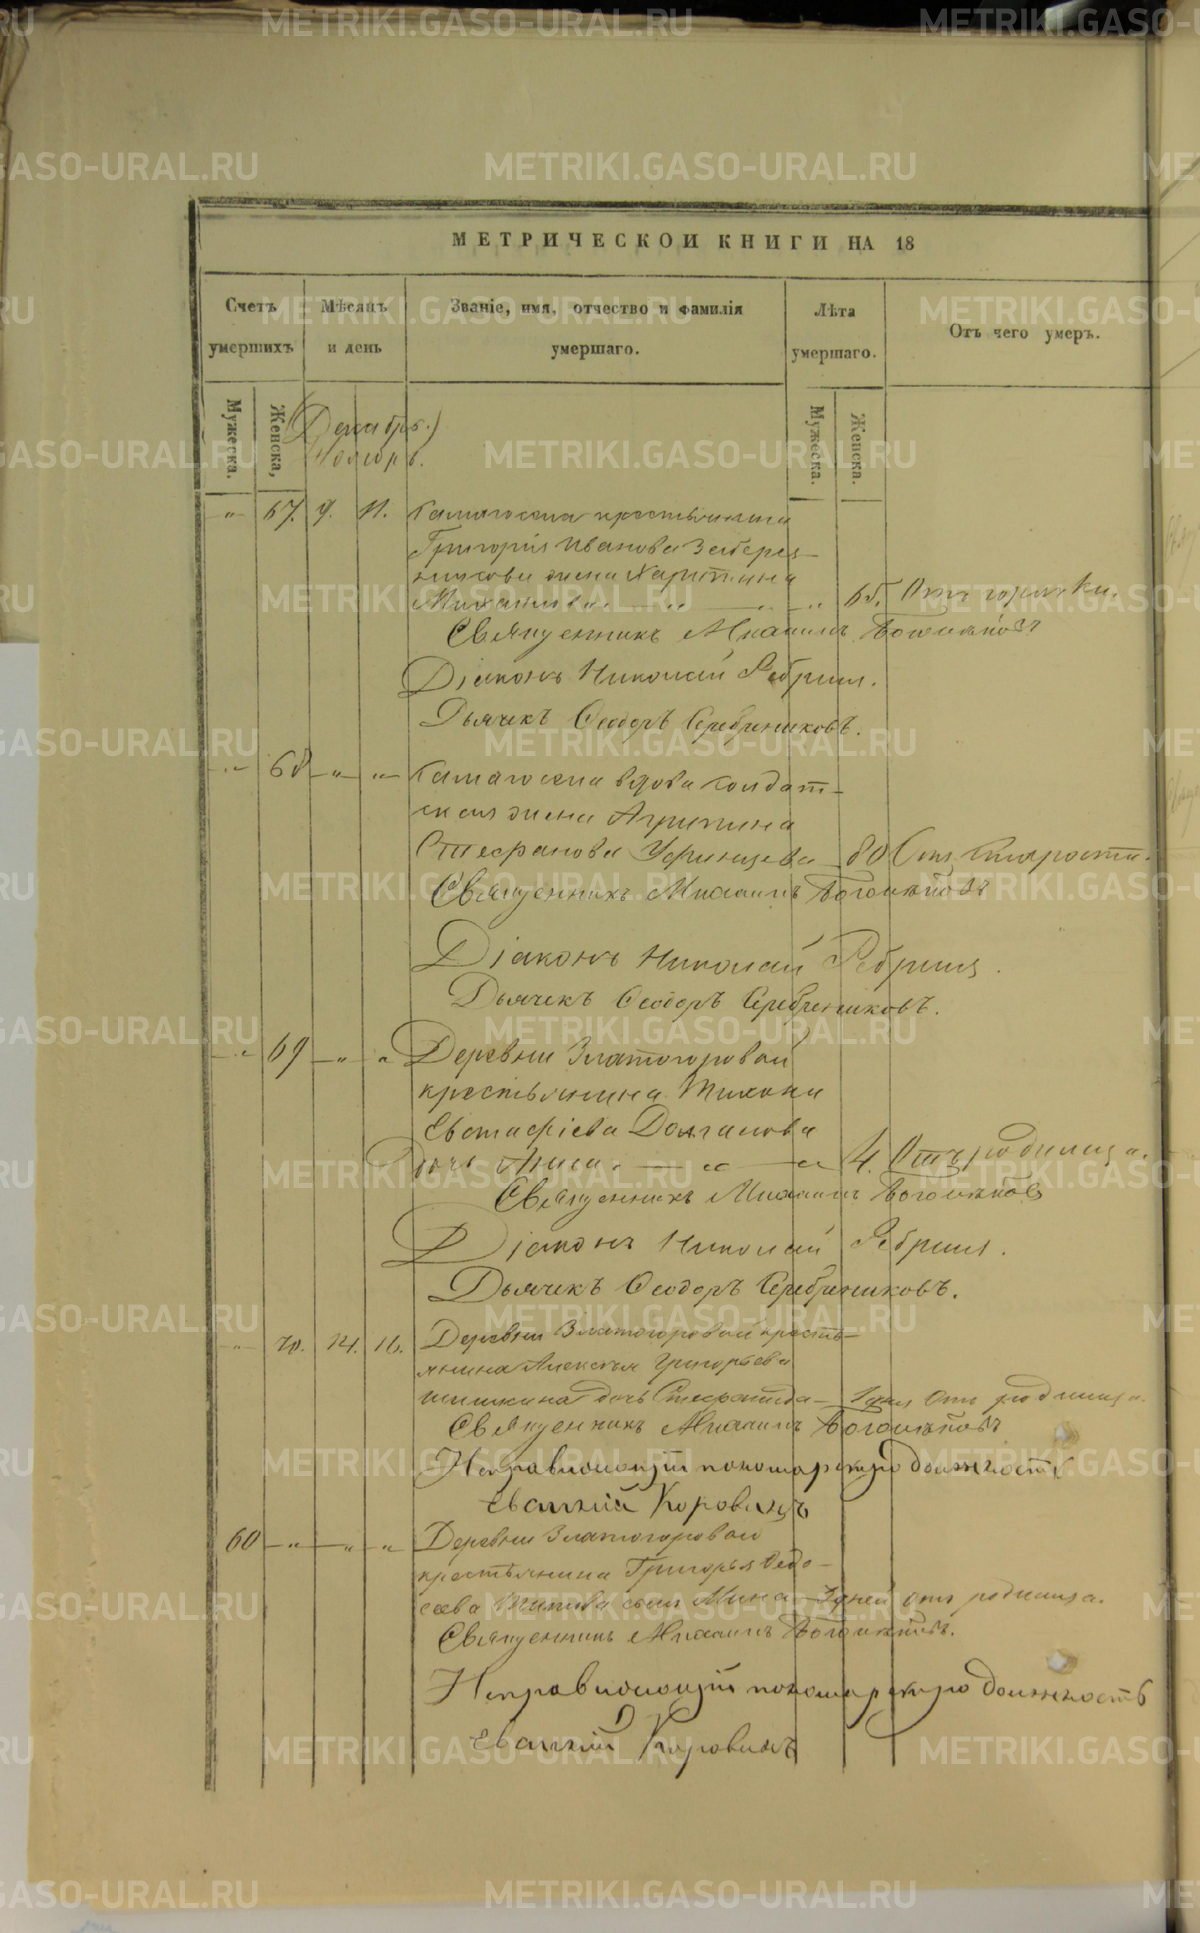 МЕТРИЧЕСКОЙ КНИГИ НА 18
Счетъ умершихъ
Мѣсяцъ и день
Званіе, имя, отчество и фамилія умершаго.
Лѣта умершаго.
Отъ чего умеръ.
Мужеска.
Женска,
Мужеска.
Женска.
(Декабрь.)
Ноябрь.
" 67. 9. 11. Камагоская крестьянина
Григорія Иванова
жена Харитина
Михаилова. — " — " — " 65. Отъ горячки.
Священникъ Михаилъ
Діаконъ Николай Ребринъ.
Дьячекъ Ѳеодоръ Серебрениковъ.
" 68 — " — " — вдова солдат-
ская жена Агрипина
Стефанова Уфинцева 80 Отъ старости.
Священникъ Михаилъ
Діаконъ Николай Ребринъ.
Дьячекъ Ѳеодоръ Серебрениковъ.
" 69 — " — " Деревни Златогоровой
крестьянина Тихона
Евстафіева Долганова
дочь Анна. — " — " 4. Отъ родимца.
Священникъ Михаилъ
Діаконъ Николай Ребринъ.
Дьячекъ Ѳеодоръ Серебрениковъ.
" 70. 14. 16. Деревни Златогоровой кресть-
янина Алексѣя Григорьева
Шишкина дочь — Отъ родимца.
Священникъ Михаилъ
Исправляющій пономарскую должность
Евгеній Коровинъ
60 — " — " — " Деревни Златогоровой
крестьянина Григорья Ѳедо-
сына сынъ Мина — 3 дней отъ родимца.
Священникъ Михаилъ
Исправляющій пономарскую должность
Евгеній Коровинъ
METRIKI.GASO-URAL.RU